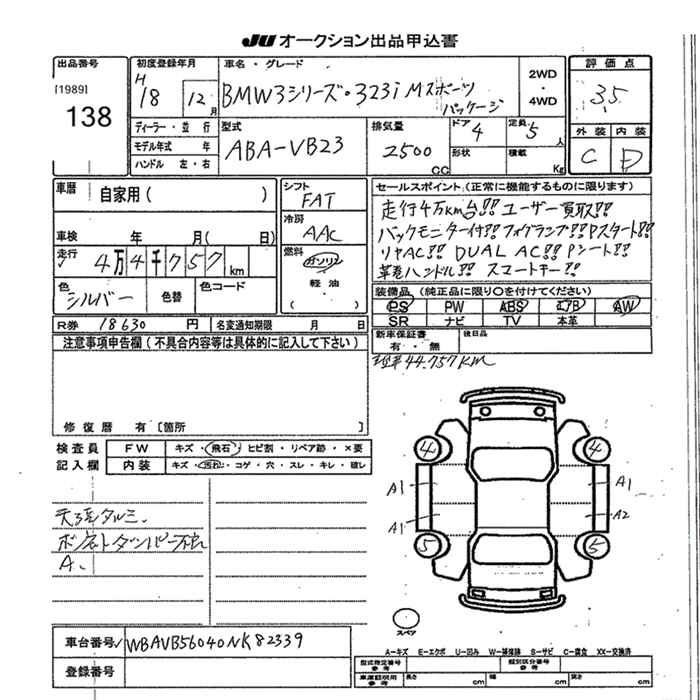 JU オークション出品申込書
出品番号 初度登録年月 車名・グレード 2WD ・ 4WD 評価点
[1989] H 18 12月 BMW3シリーズ・323i Mスポーツ パッケージ 3.5
138
ディーラー・並行 型式 排気量 ドア 4 定員 5人 外装 内装
モデル年式 年 ABA-VB23 2500cc 形状 積載 Kg C D
ハンドル 左・右
車歴 自家用( ) シフト FAT セールスポイント(正常に機能するものに限ります)
冷房 AAC 走行4万km台!! ユーザー買取!!
車検 年 月( 日) バックモニター付!! フォグランプ!! Pスタート!!
走行 4万4千757km 燃料 ガソリン リヤAC!! DUAL AC!! Pシート!!
軽油 革巻ハンドル!! スマートキー!!
色 シルバー 色替 色コード ( ) 装備品(純正品に限り○を付けてください)
PS PW ABS エアB AW
R券 18630円 名変通知期限 月 日 SR ナビ TV 本革
注意事項申告欄(不具合内容等は具体的に記入して下さい) 新車保証書 有・無 後日品
44.757KM
修復歴 有[箇所 ]
検査員 FW キズ・飛石・ヒビ割・リペア跡・×要
記入欄 内装 キズ・汚れ・コゲ・穴・スレ・キレ・破レ
4 4
A1 A1
天張タルミ、
A1 A2
ボンネットダンパー不良
5 5
A、
スペア
車台番号 WBAVB56040NK82339
A-キズ E-エクボ U-凹み W-補修跡 S-サビ C-腐食 XX-交換済
登録番号
型式指定番号 参考 類別区分番号 参考
車庫証明用 参考 長さ cm 幅 cm 高さ cm